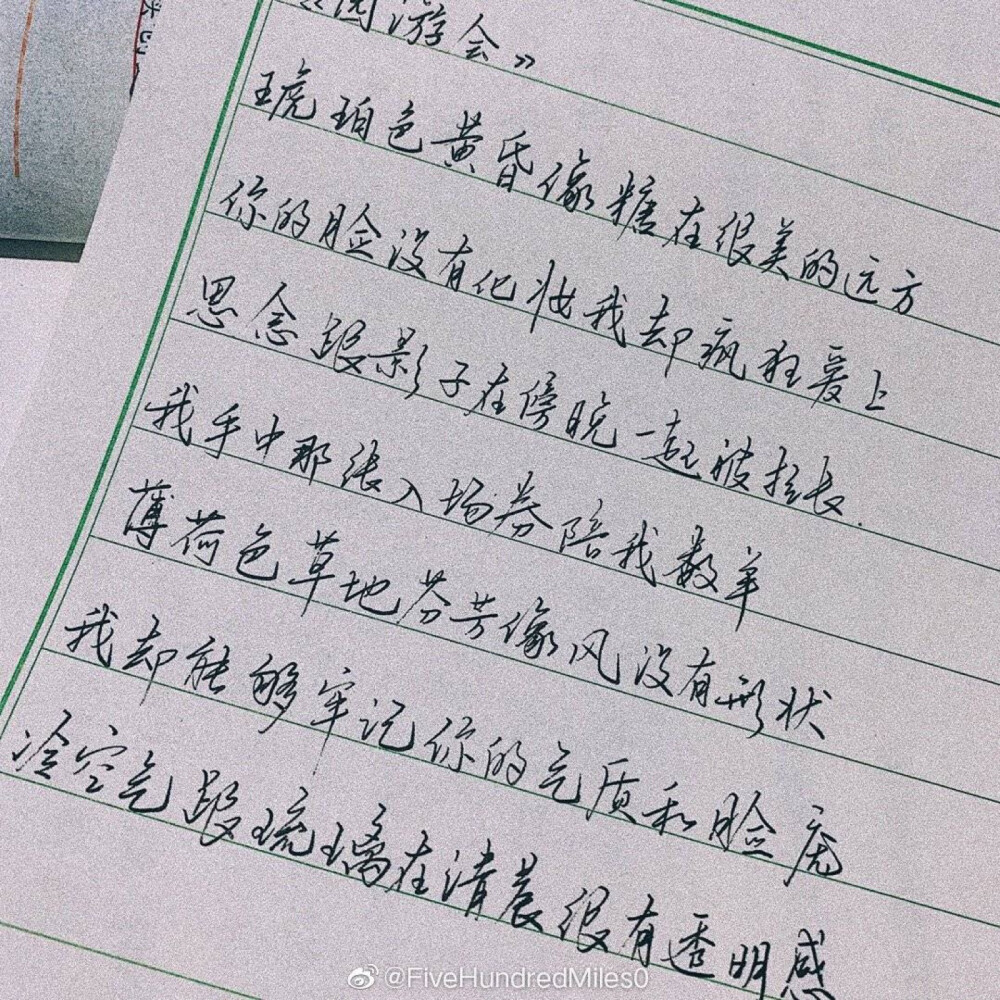 《园游会》
琥珀色黄昏像糖在很美的远方
你的脸没有化妆我却疯狂爱上
思念跟影子在傍晚一起被拉长.
我手中那张入场券陪我数羊
薄荷色草地芬芳像风没有形状
我却能够牢记你的气质和脸庞
冷空气跟琉璃在清晨很有透明感
@FiveHundredMiles0